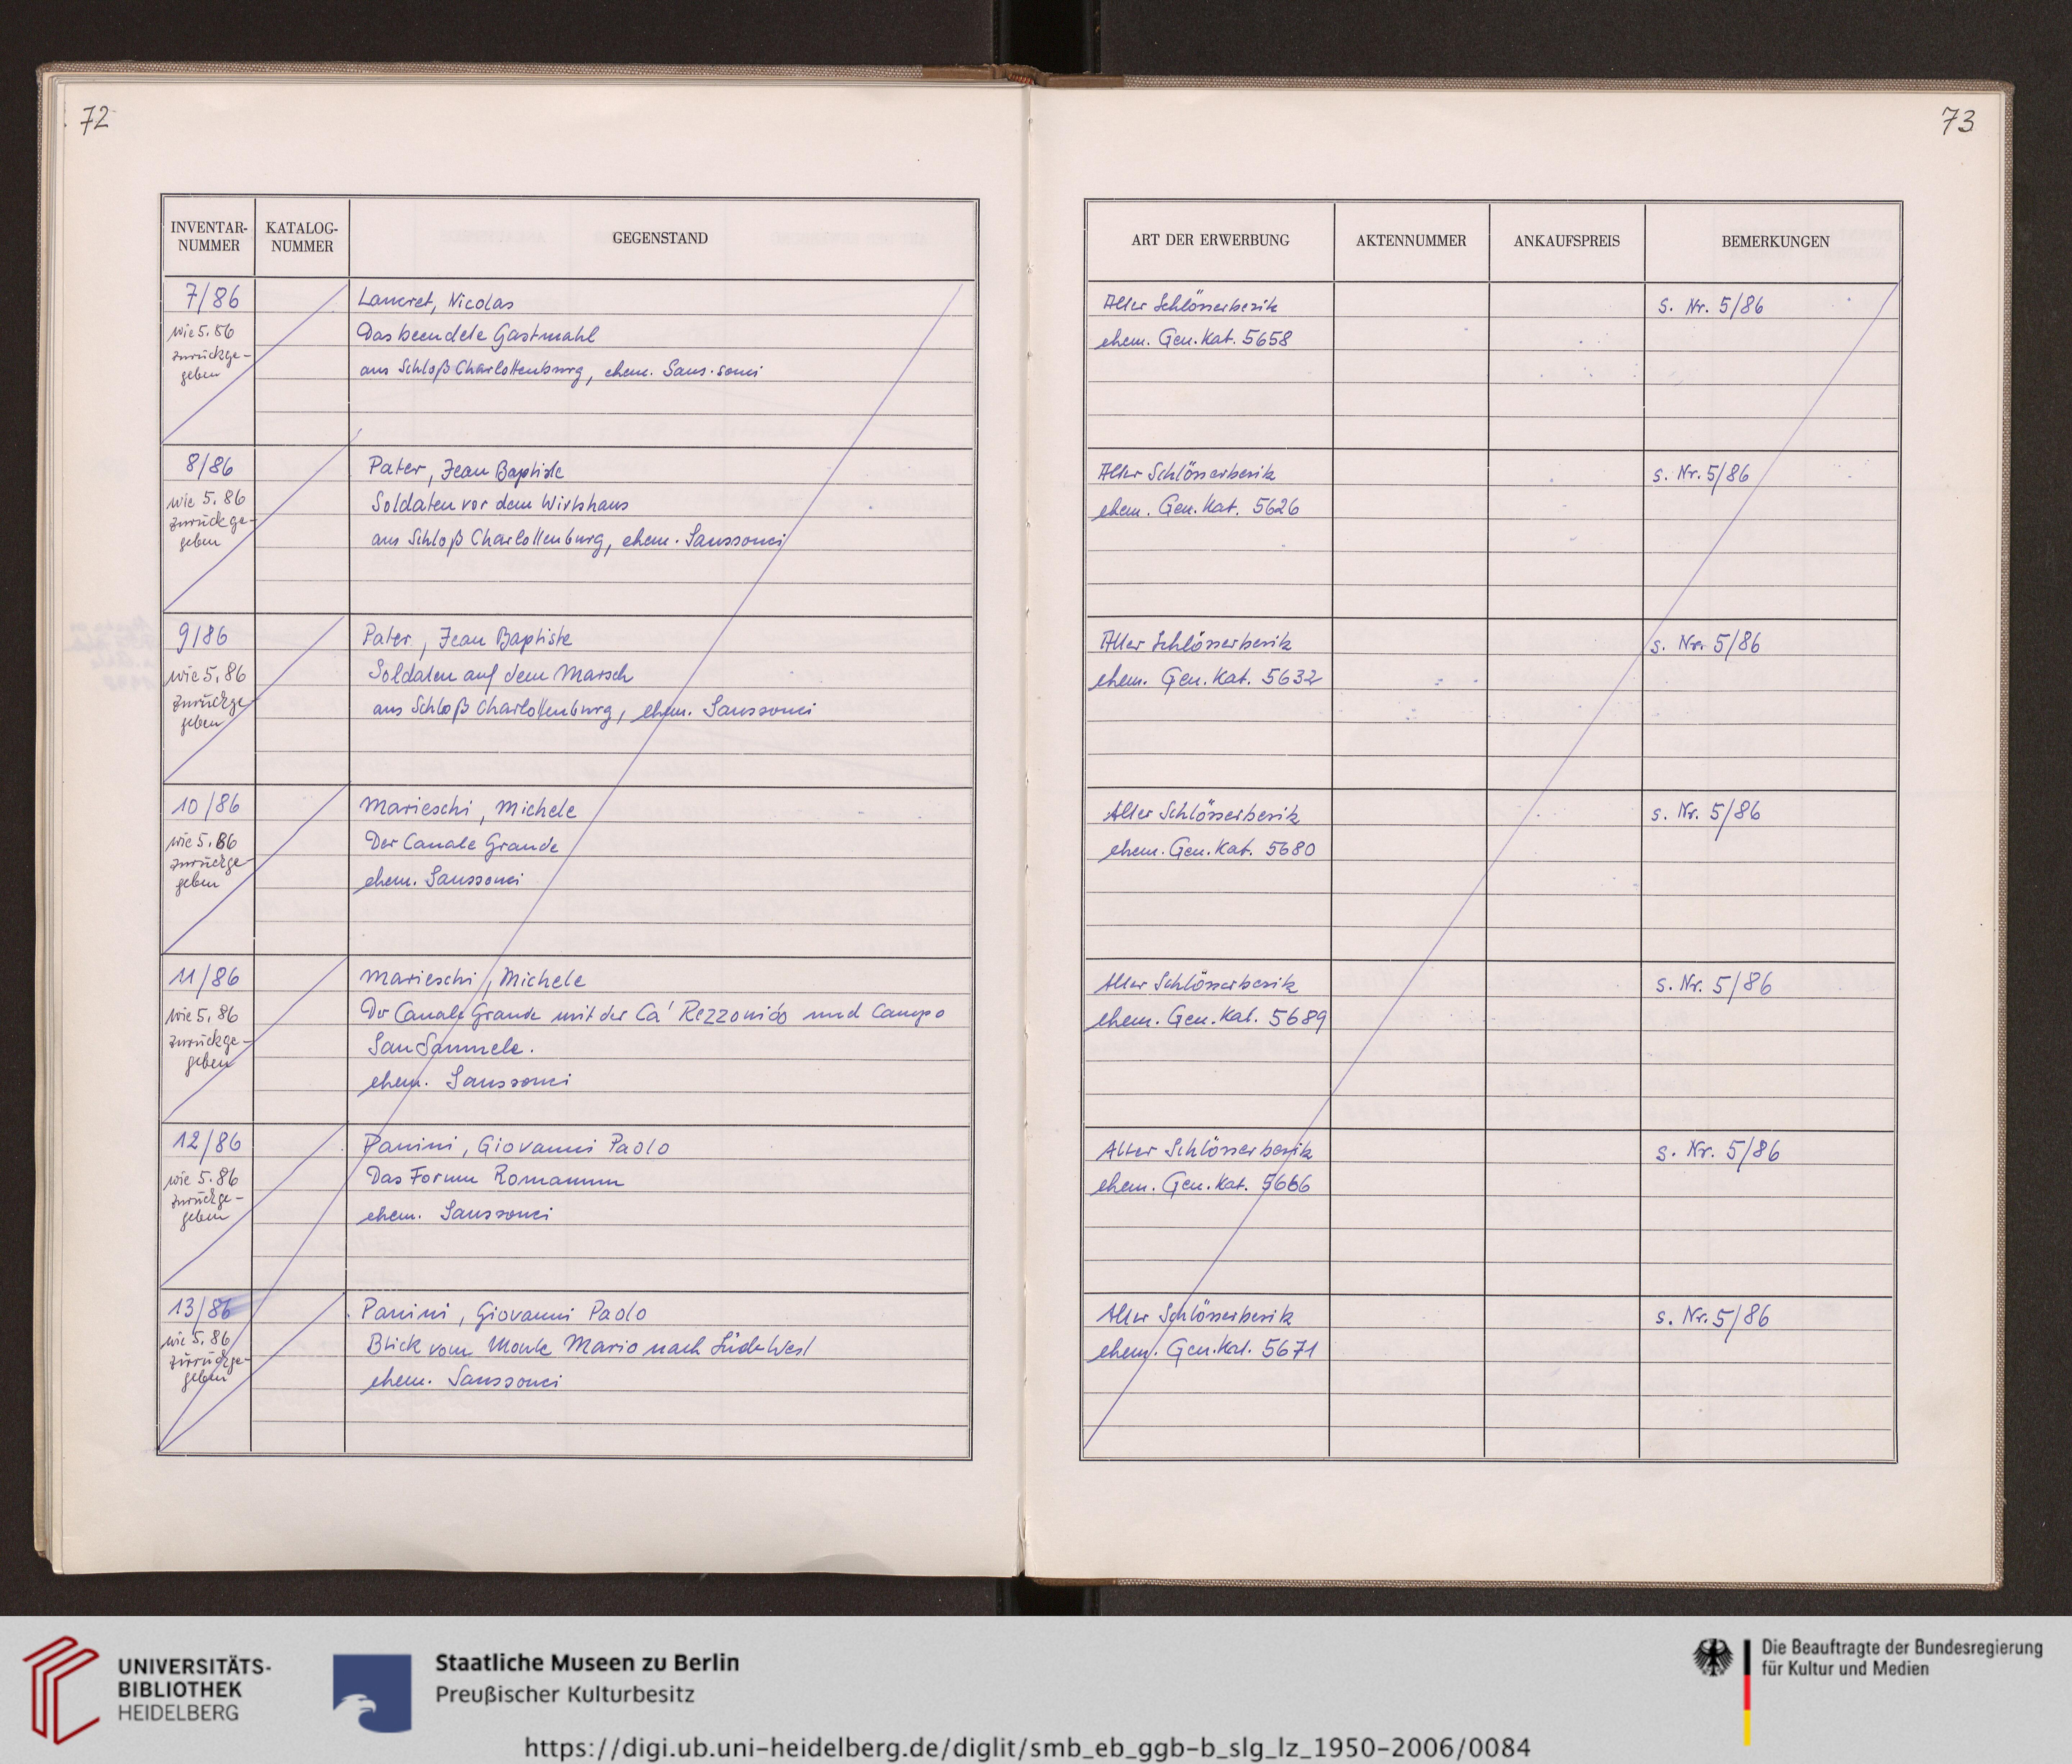 72
INVENTAR-
NUMMER
KATALOG-
NUMMER
GEGENSTAND
7/86
wie 5.86
zurückge-
geben
Lancret, Nicolas
Das beendete Gastmahl
aus Schloß Charlottenburg, ehem. Sans-souci
8/86
wie 5.86
zurückge-
geben
Pater, Jean Baptiste
Soldaten vor dem Wirtshaus
aus Schloß Charlottenburg, ehem. Sanssouci
9/86
wie 5.86
zurückge
geben
Pater, Jean Baptiste
Soldaten auf dem Marsch
aus Schloß Charlottenburg, ehem. Sanssouci
10/86
wie 5.86
zurückge-
geben
Marieschi, Michele
Der Canale Grande
ehem. Sanssouci
11/86
wie 5.86
zurückge-
geben
Marieschi, Michele
Der Canale Grande mit der Ca' Rezzonico und Campo
San Samuele.
ehem. Sanssouci
12/86
wie 5.86
zurückge-
geben
Panini, Giovanni Paolo
Das Forum Romanum
ehem. Sanssouci
13/86
wie 5.86
zurückge-
geben
Panini, Giovanni Paolo
Blick vom Monte Mario nach Südwest
ehem. Sanssouci
73
ART DER ERWERBUNG
AKTENNUMMER
ANKAUFSPREIS
BEMERKUNGEN
Alter Schlösserbesitz
ehem. Gen. Kat. 5658
s. Nr. 5/86
Alter Schlösserbesitz
ehem. Gen. Kat. 5626
s. Nr. 5/86
Alter Schlösserbesitz
ehem. Gen. Kat. 5632
s. Nr. 5/86
Alter Schlösserbesitz
ehem. Gen. Kat. 5680
s. Nr. 5/86
Alter Schlösserbesitz
ehem. Gen. Kat. 5689
s. Nr. 5/86
Alter Schlösserbesitz
ehem. Gen. Kat. 5666
s. Nr. 5/86
Alter Schlösserbesitz
ehem. Gen. Kat. 5671
s. Nr. 5/86
UNIVERSITÄTS-
BIBLIOTHEK
HEIDELBERG
Staatliche Museen zu Berlin
Preußischer Kulturbesitz
Die Beauftragte der Bundesregierung
für Kultur und Medien
https://digi.ub.uni-heidelberg.de/diglit/smb_eb_ggb-b_slg_lz_1950-2006/0084